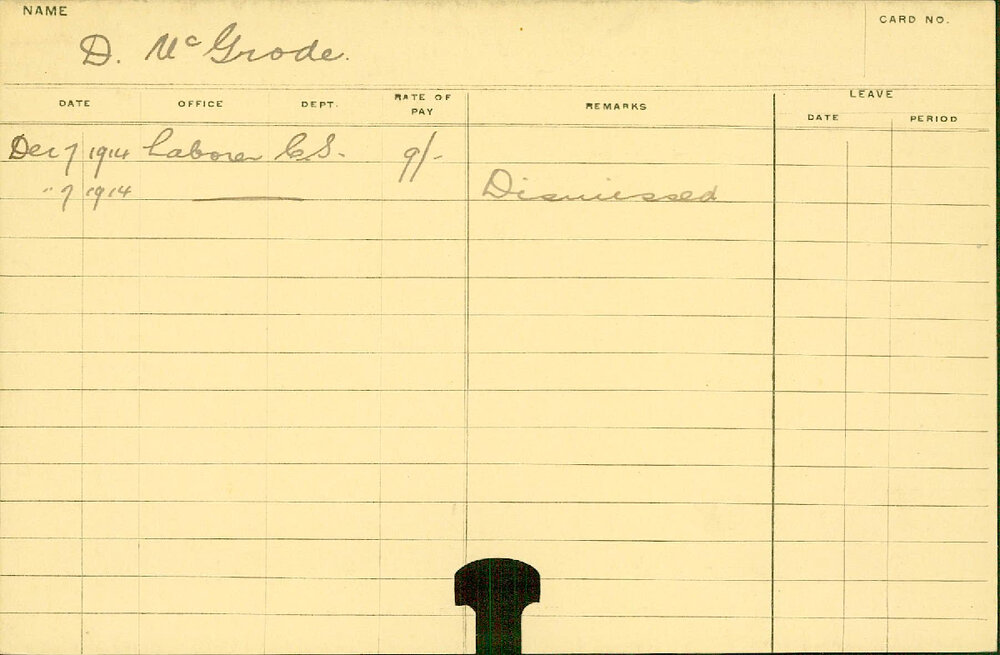 NAME
CARD NO.
D. McGrode.
DATE OFFICE DEPT. RATE OF PAY REMARKS LEAVE
DATE PERIOD
Dec 7 1914 Laborer C.S. 9/-
" 7 1914 Dismissed